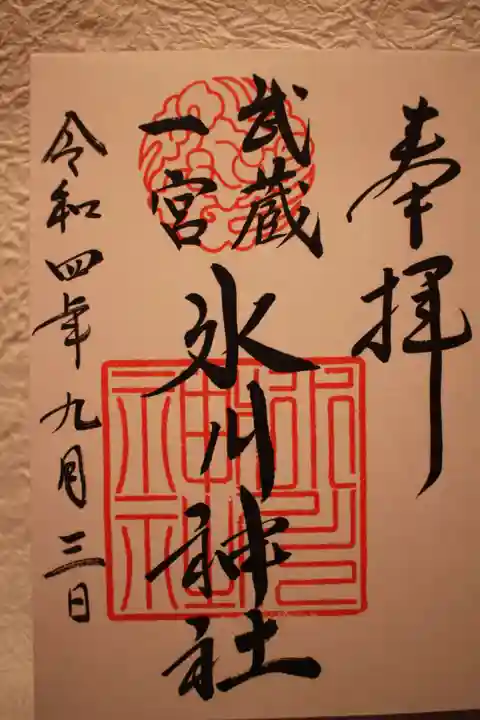 奉拝
武蔵
一宮
氷川神社
令和四年九月三日
氷川神社